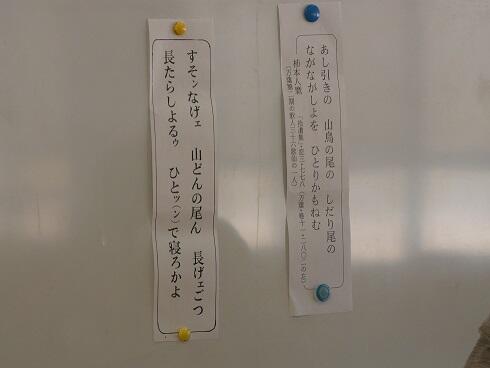 あし引きの　山鳥の尾の　しだり尾の
ながながしよを　ひとりかもねむ
柿本人麿
すそンなげェ　山どんの尾ん　長げェごつ
長たらしよるゥ　ひとッ(ン)で寝ろかよ